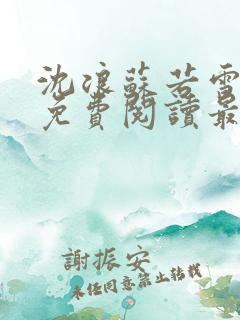 沈浪蘇若雪
免費閱讀最
謝振安
未任同意禁止转载